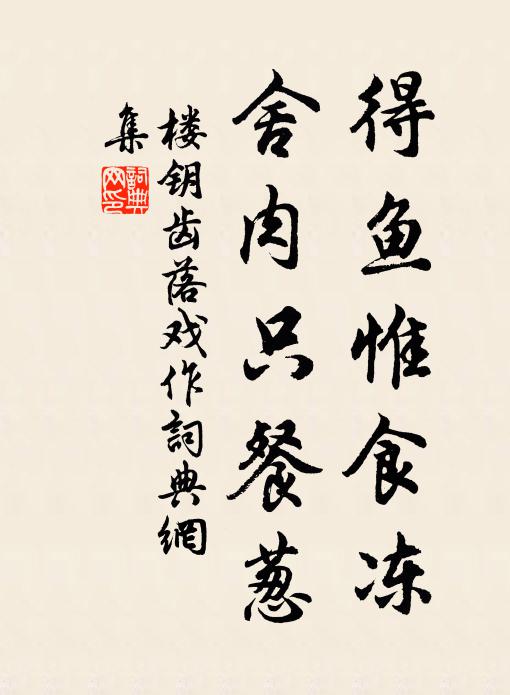 得鱼惟食冻
舍肉只餐葱
楼钥齿落戏作詞典網
集
詞典
网印